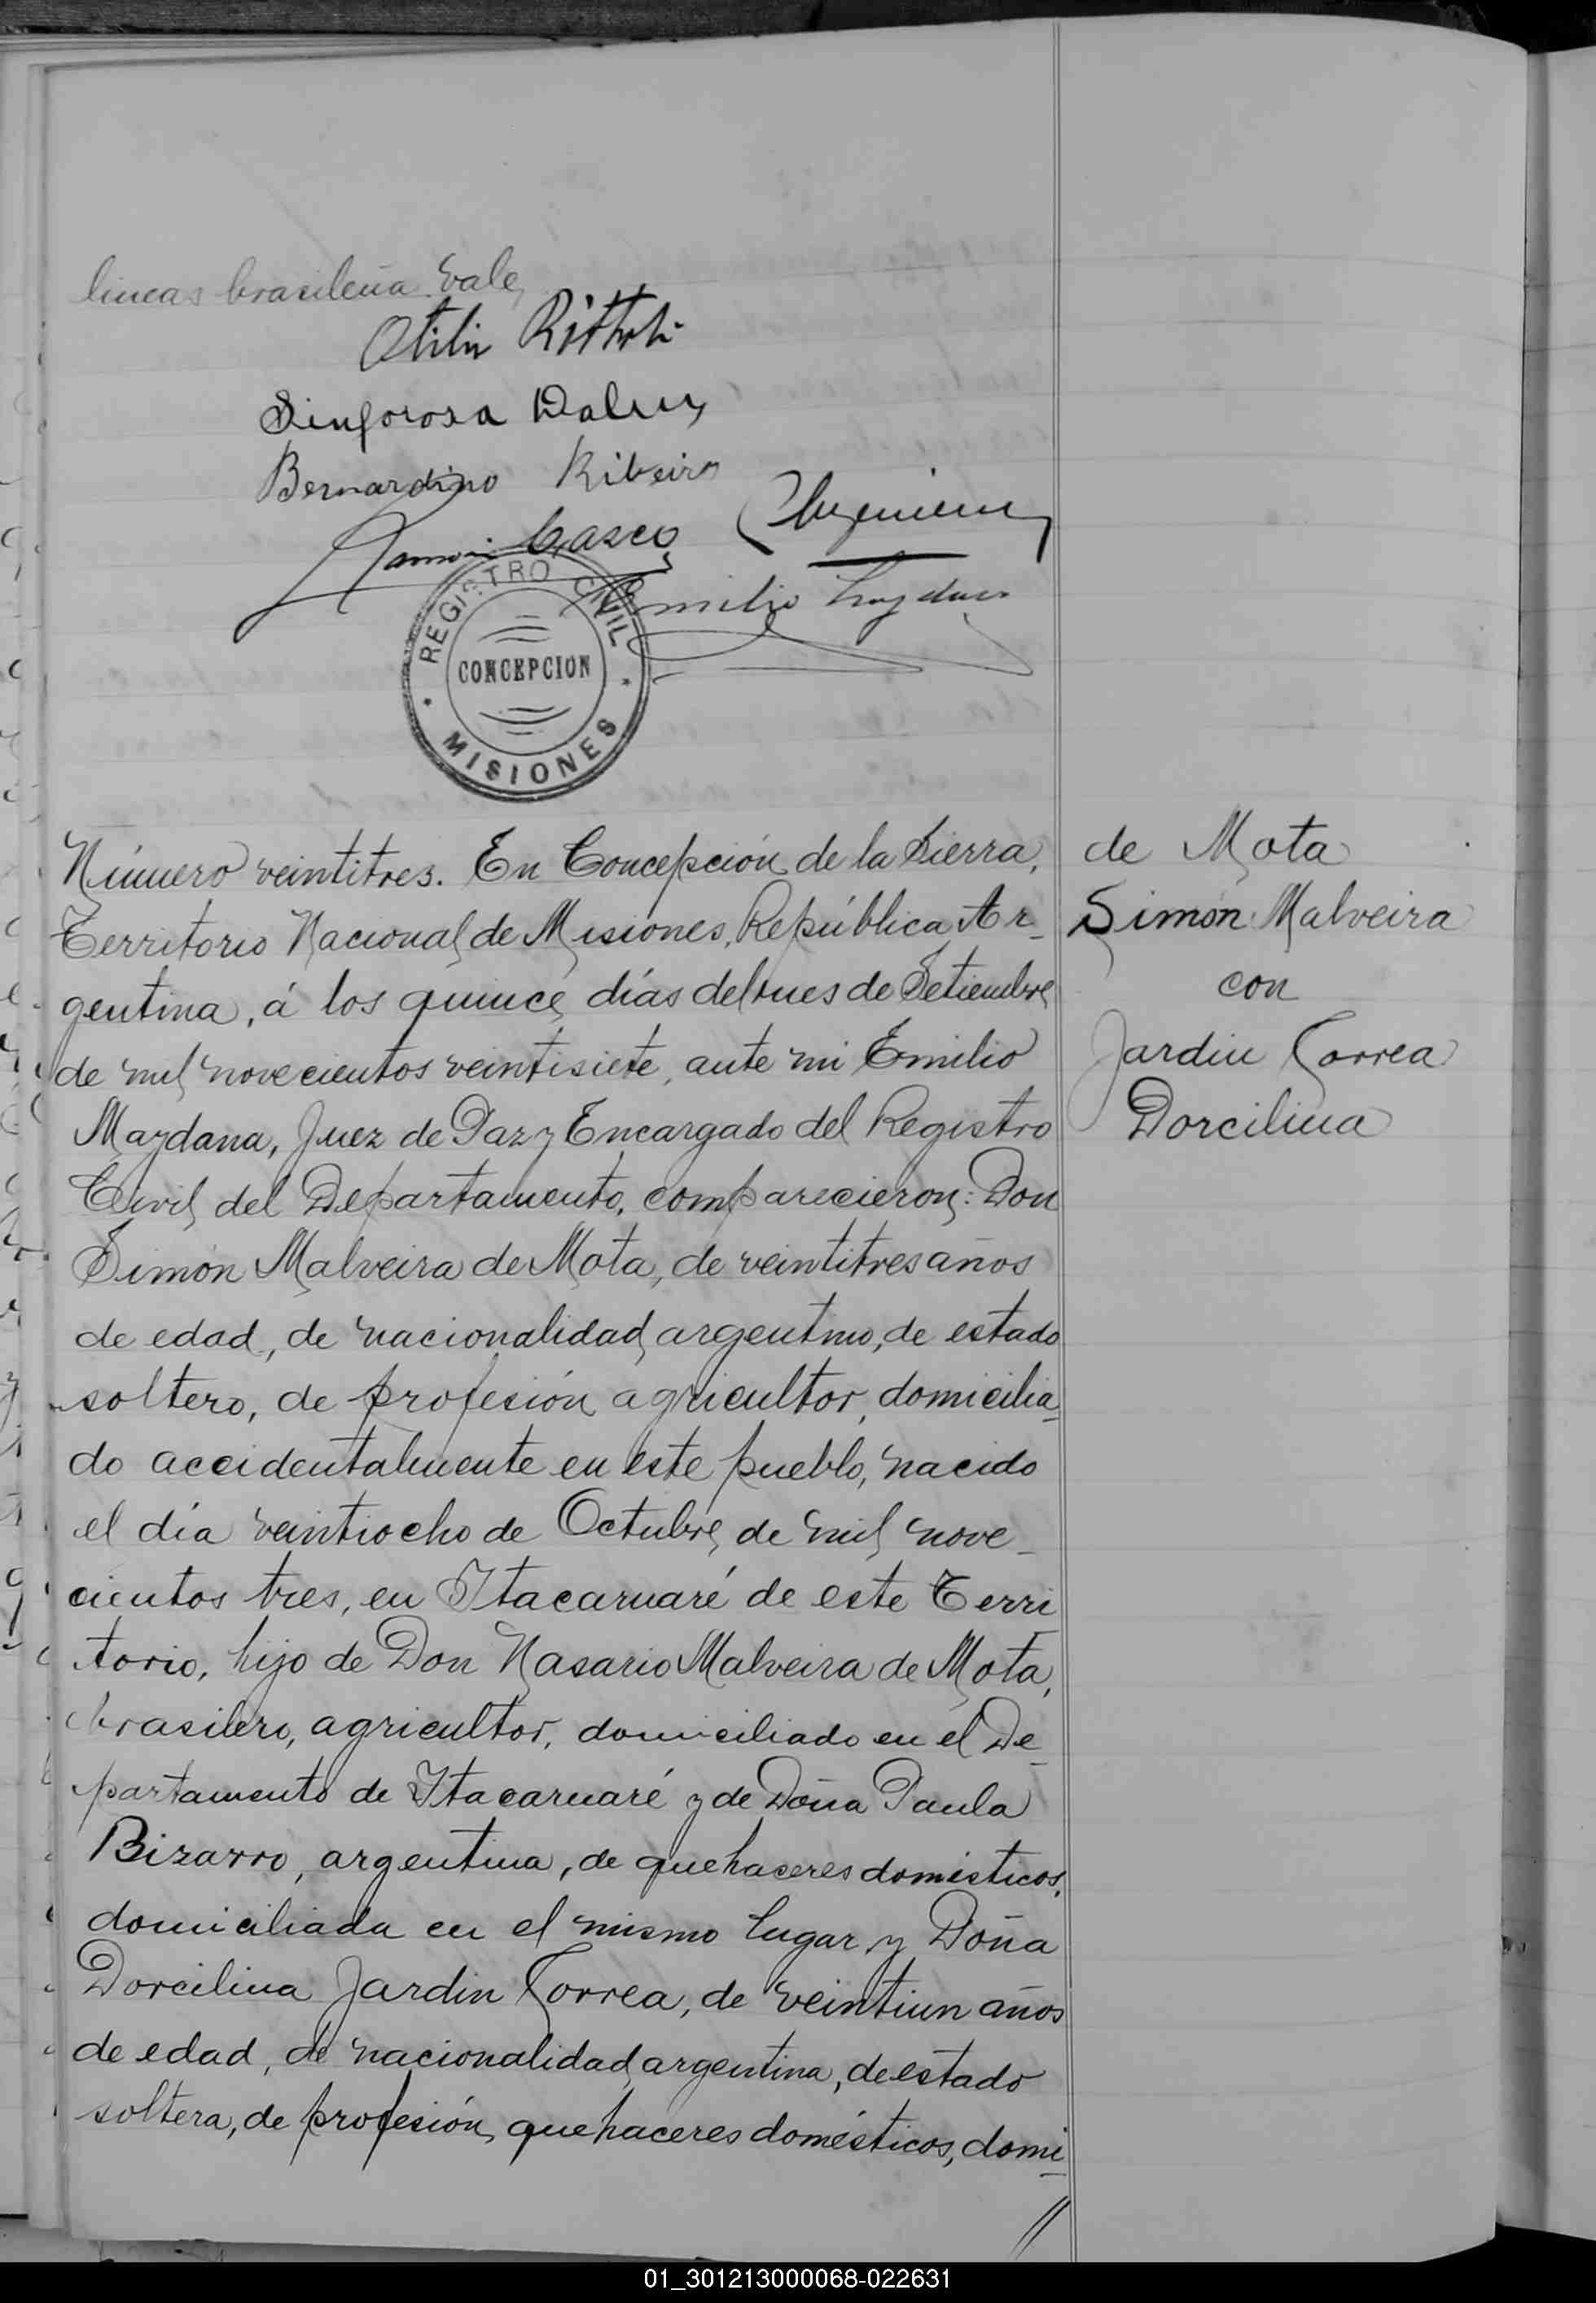 lineas brasileña vale,
Singorosa Daluz
Bernardino Ribeiro
Ramón Gasco
Emilio
REGISTRO CIVIL
CONCEPCION
MISIONES
Número veintitres. En Concepción de la Sierra,
Territorio Nacional de Misiones, República Ar-
gentina, á los quince días del mes de Setiembre
de mil novecientos veintisiete, ante mi Emilio
Maydana, Juez de Paz y Encargado del Registro
Civil del Departamento, comparecieron: Don
Simón Malveira de Mota, de veintitres años
de edad, de nacionalidad argentino, de estado
soltero, de profesión agricultor, domicilia-
do accidentalmente en este pueblo, nacido
el día veintiocho de Octubre de mil nove-
cientos tres, en Itacaruaré de este Terri
torio, hijo de Don Nasario Malveira de Mota,
brasilero, agricultor, domiciliado en el De-
partamento de Itacaruaré y de Doña Paula
Bizarro, argentina, de quehaceres domésticos,
domiciliada en el mismo lugar y Doña
Dorcilina Jardin Correa, de veintiun años
de edad, de nacionalidad argentina, de estado
soltera, de profesión quehaceres domésticos, domi-
//
de Mota
Simón Malveira
con
Jardin Correa
Dorcilina
01_301213000068-022631